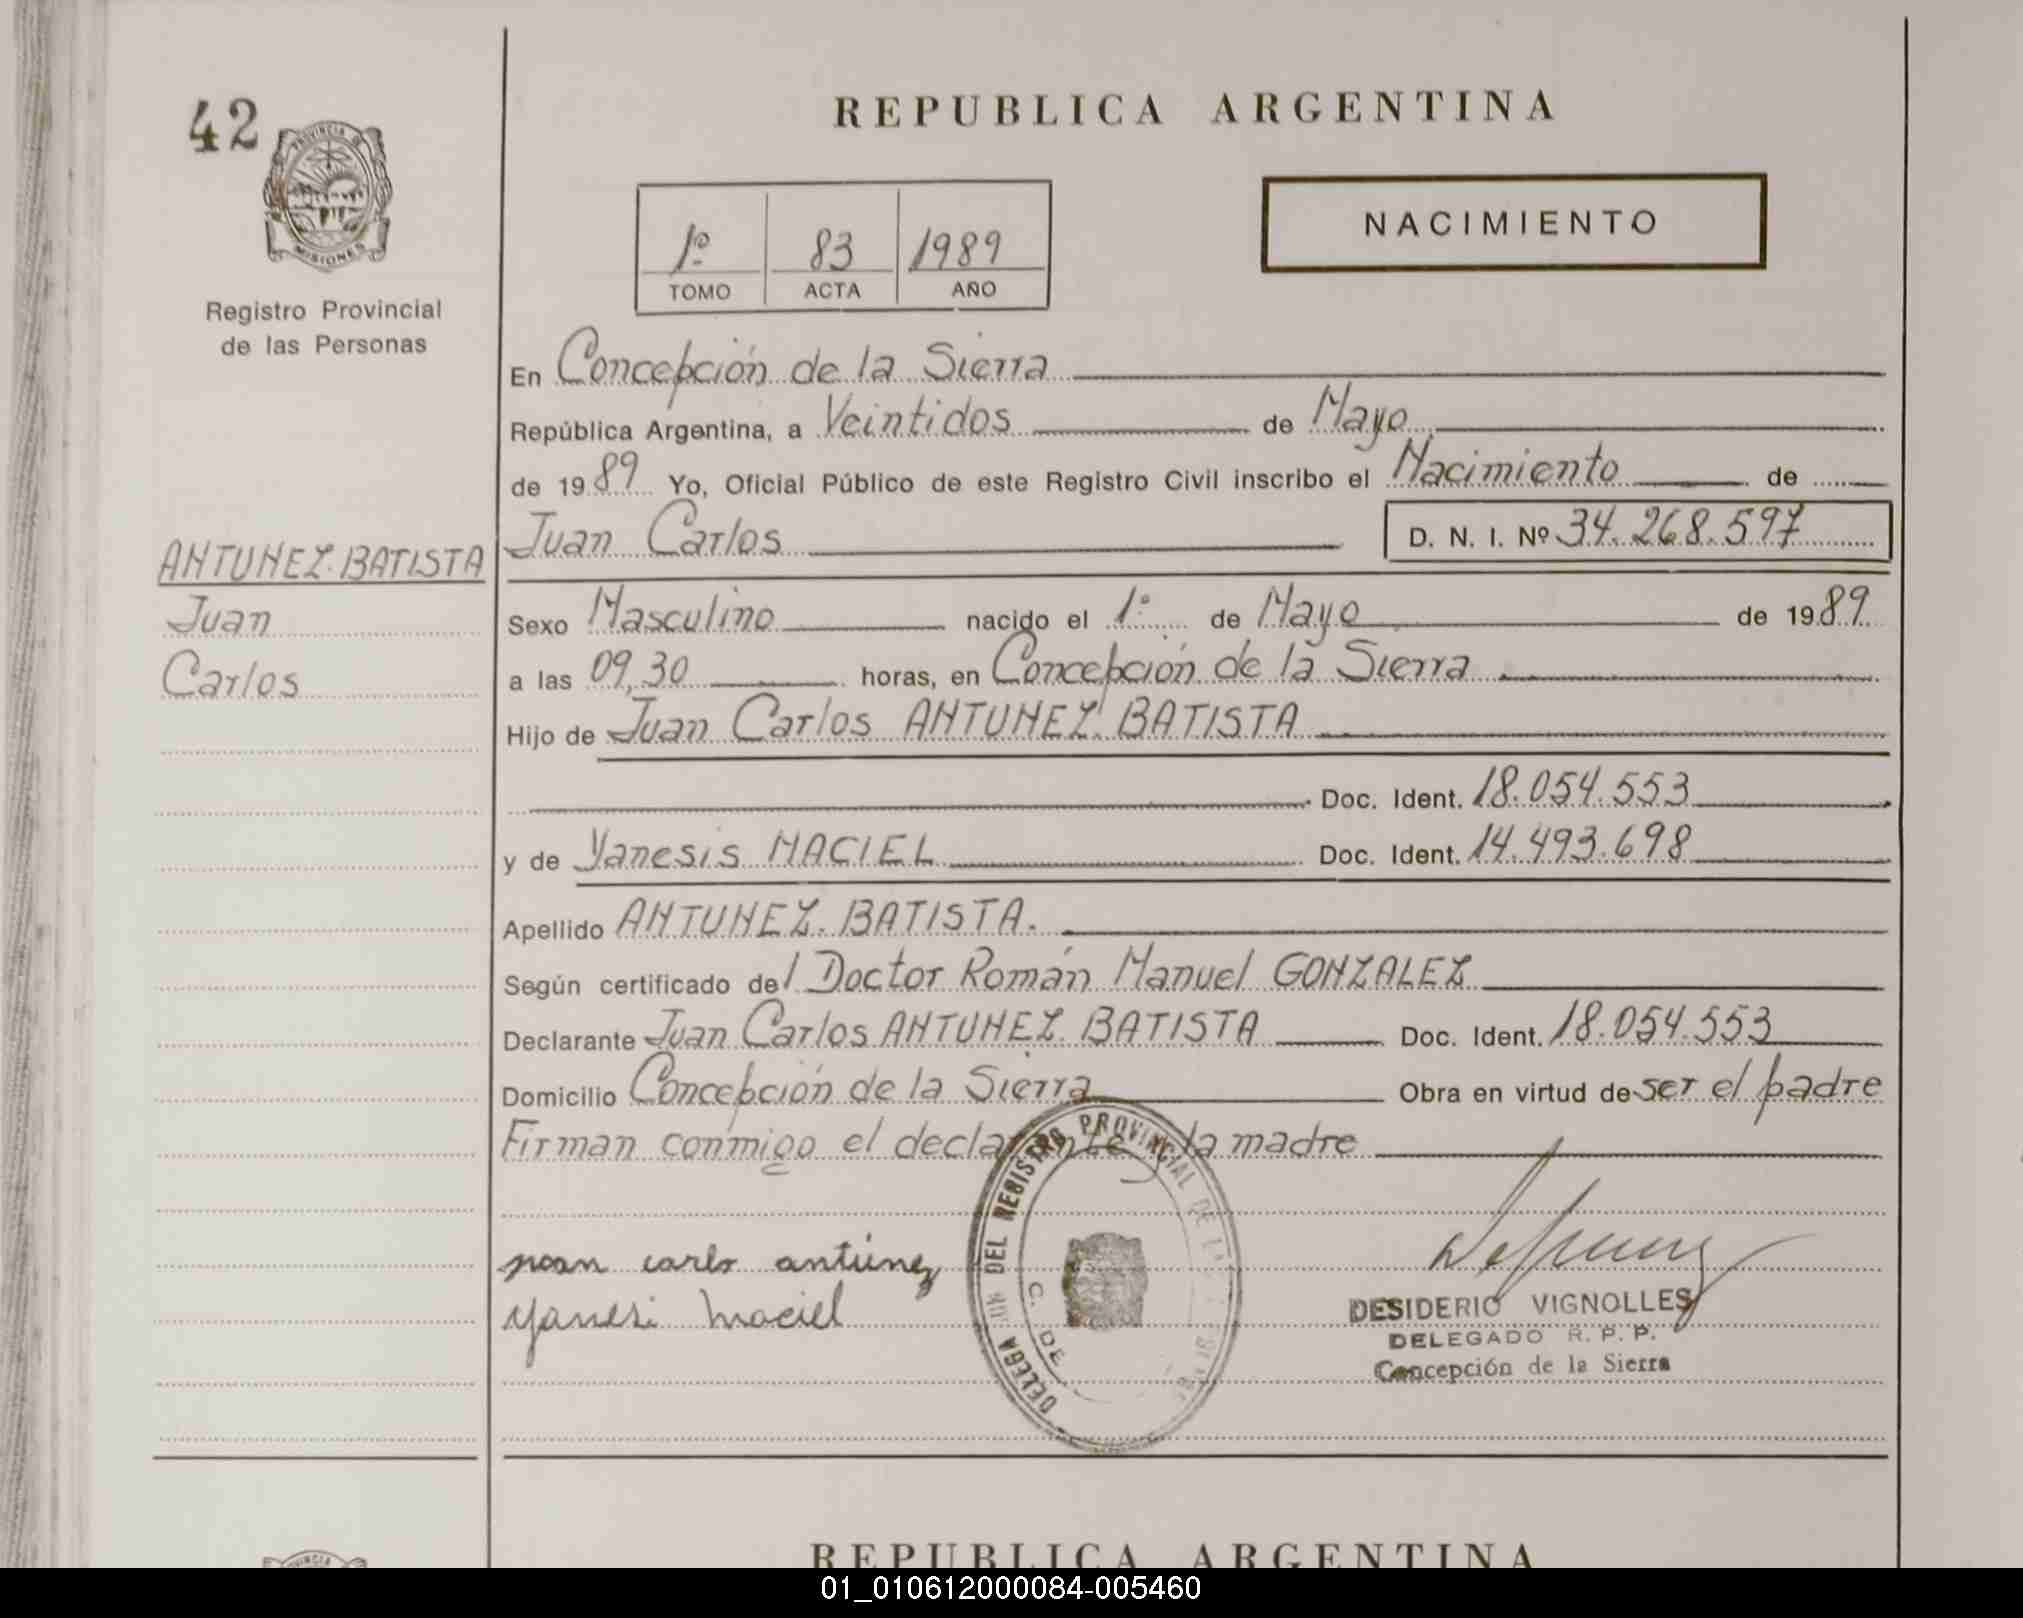 42
PROVINCIA DE
MISIONES
Registro Provincial
de las Personas
ANTUNEZ. BATISTA
Juan
Carlos
REPUBLICA ARGENTINA
1º 83 1989
TOMO ACTA AÑO
NACIMIENTO
En Concepción de la Sierra
República Argentina, a Veintidos de Mayo
de 1989 Yo, Oficial Público de este Registro Civil inscribo el Nacimiento de
Juan Carlos D. N. I. Nº 34.268.597
Sexo Masculino nacido el 1º de Mayo de 1989
a las 09,30 horas, en Concepción de la Sierra
Hijo de Juan Carlos ANTUNEZ. BATISTA
Doc. Ident. 18.054.553
y de Yanesis MACIEL Doc. Ident. 14.493.698
Apellido ANTUNEZ. BATISTA.
Según certificado del Doctor Román Manuel GONZALEZ
Declarante Juan Carlos ANTUNEZ. BATISTA Doc. Ident. 18.054.553
Domicilio Concepción de la Sierra Obra en virtud de ser el padre
Firman conmigo el declarante y la madre
DEL REGISTRO PROVINCIAL DE
C. DE
juan carlo antúnez
yanesi maciel
DESIDERIO VIGNOLLES
DELEGADO R. P. P.
Concepción de la Sierra
REPUBLICA ARGENTINA
01_010612000084-005460